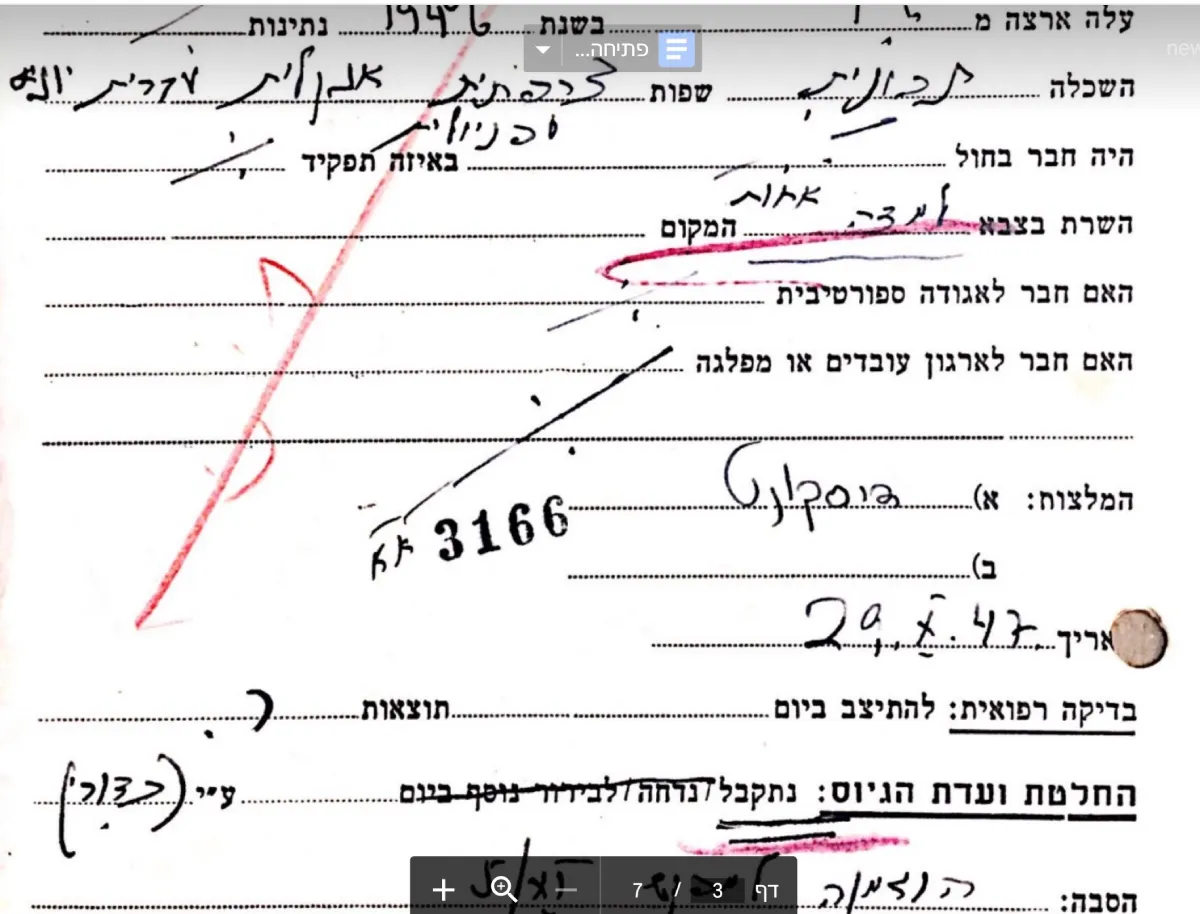 עלה ארצה מ בשנת 194 נתינות
פתיחה...
new
השכלה תכונית שפות צרפתית אנגלית עברית
ספניולית
היה חבר בחול באיזה תפקיד
אחות
השרת בצבא למדה המקום
האם חבר לאגודה ספורטיבית
האם חבר לארגון עובדים או מפלגה
המלצות: א) דיסקונט
3166
ב)
אריך 29. X. 47
בדיקה רפואית: להתיצב ביום תוצאות
החלטת ועדת הגיוס: נתקבל/נדחה/לבירור נוסף ביום ע״י (כדורי)
הסבה: הוזמנה
דף 3 / 7